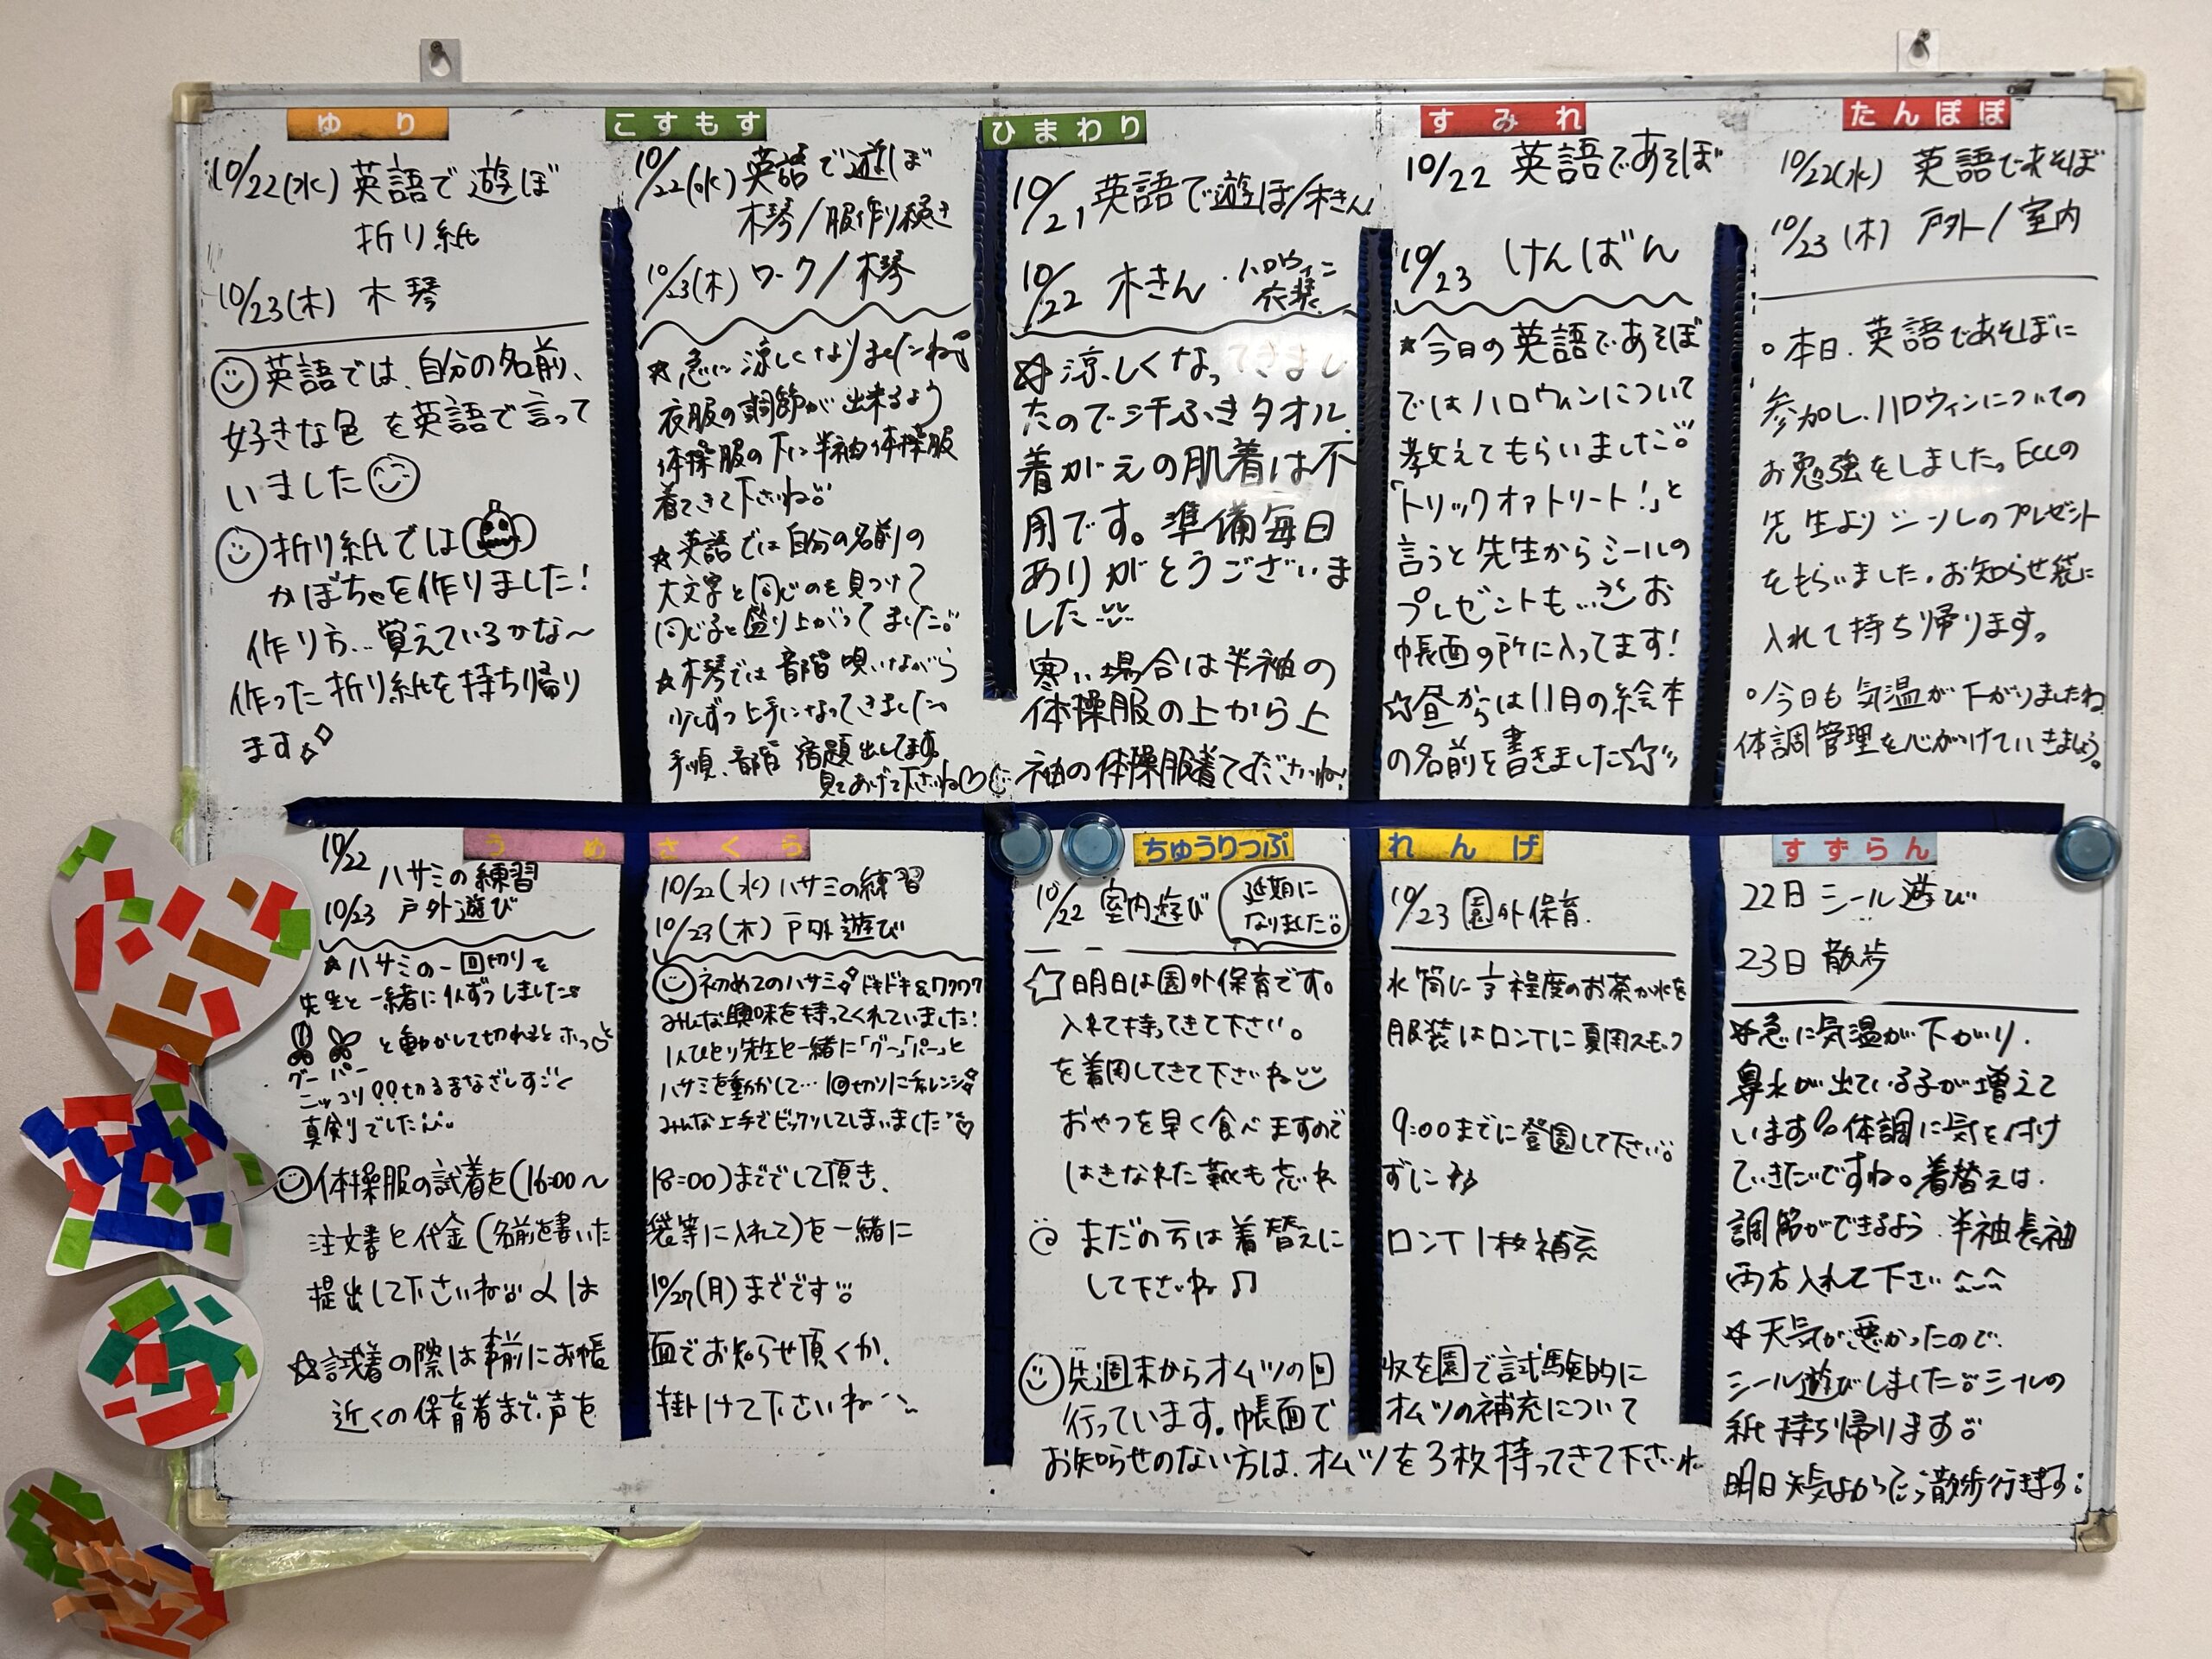 ゆり
10/22(水) 英語で遊ぼ
折り紙
10/23(木) 木琴
英語では、自分の名前、
好きな色 を英語で言って
いました
折り紙では
かぼちゃを作りました!
作り方…覚えているかな〜
作った折り紙を持ち帰り
ます
こすもす
10/22(水) 英語で遊ぼ
木琴/服作り続き
10/23(木) ワーク/木琴
★急に涼しくなりましたね
衣服の調節が出来るよう
体操服の下に半袖体操服
着てきて下さいね。
★英語では自分の名前の
大文字と同じのを見つけて
同じ子と盛り上がってました。
★木琴では音階 唄いながら
少しずつ上手になってきました。
手順、音階 宿題出してます
見てあげて下さいね♡
ひまわり
10/21 英語で遊ぼ/木きん
10/22 木きん・ハロウィン
衣装
☆涼しくなってきまし
たので汗ふきタオル、
着がえの肌着は不
用です。準備毎日
ありがとうございま
した
寒い場合は半袖の
体操服の上から上
袖の体操服着てくださいね!
すみれ
10/22 英語であそぼ
10/23 けんばん
★今日の英語であそぼ
ではハロウィンについて
教えてもらいました。
「トリックオアトリート!」と
言うと先生からシールの
プレゼントも… お
帳面の所に入ってます!
☆昼からは11月の絵本
の名前を書きました☆
たんぽぽ
10/22(水) 英語であそぼ
10/23(木) 戸外/室内
○本日、英語であそぼに
参加し、ハロウィンについての
お勉強をしました。ECCの
先生よりシールのプレゼント
をもらいました。お知らせ袋に
入れて持ち帰ります。
○今日も気温が下がりましたね
体調管理を心がけていきましょう。
うめ
10/22 ハサミの練習
10/23 戸外遊び
★ハサミの一回切りを
先生と一緒に1人ずつしました
と動かして切れるとホッ
グー パー
ニッコリ!!切るまなざしすごく
真剣でした
さくら
10/22(水) ハサミの練習
10/23(木) 戸外遊び
初めてのハサミ ドキドキ&ワクワク
みんな興味を持ってくれていました!
1人ひとり先生と一緒に「グー」「パー」と
ハサミを動かして…1回切りにチャレンジ
みんな上手でビックリしてしまいました♡
体操服の試着を(16:00〜18:00)まででして頂き、
注文書と代金(名前を書いた袋等に入れて)を一緒に
提出して下さいね 〆は10/27(月)までです
☆試着の際は事前にお帳面でお知らせ頂くか、
近くの保育者まで声を掛けて下さいね
ちゅうりっぷ
10/22 室内遊び
延期に
なりました。
れんげ
10/23 園外保育.
☆明日は園外保育です。水筒に 程度のお茶か水を
入れて持ってきて下さい。服装はロンTに夏用スモック
を着用してきて下さいね
おやつを早く食べますので 9:00までに登園して下さい。
はきなれた靴も忘れずに
まだの方は着替えにロンT1枚補充
して下さいね♫
先週末からオムツの回収を園で試験的に
行っています。帳面でオムツの補充について
お知らせのない方は、オムツを3枚持ってきて下さいね
すずらん
22日 シール遊び
23日 散歩
☆急に気温が下がり、
鼻水が出ている子が増えて
います 体調に気を付け
ていきたいですね。着替えは、
調節ができるよう、半袖長袖
両方入れて下さい
☆天気が悪かったので、
シール遊びしました。シールの
紙持ち帰ります。
明日天気よかったら散歩行きます